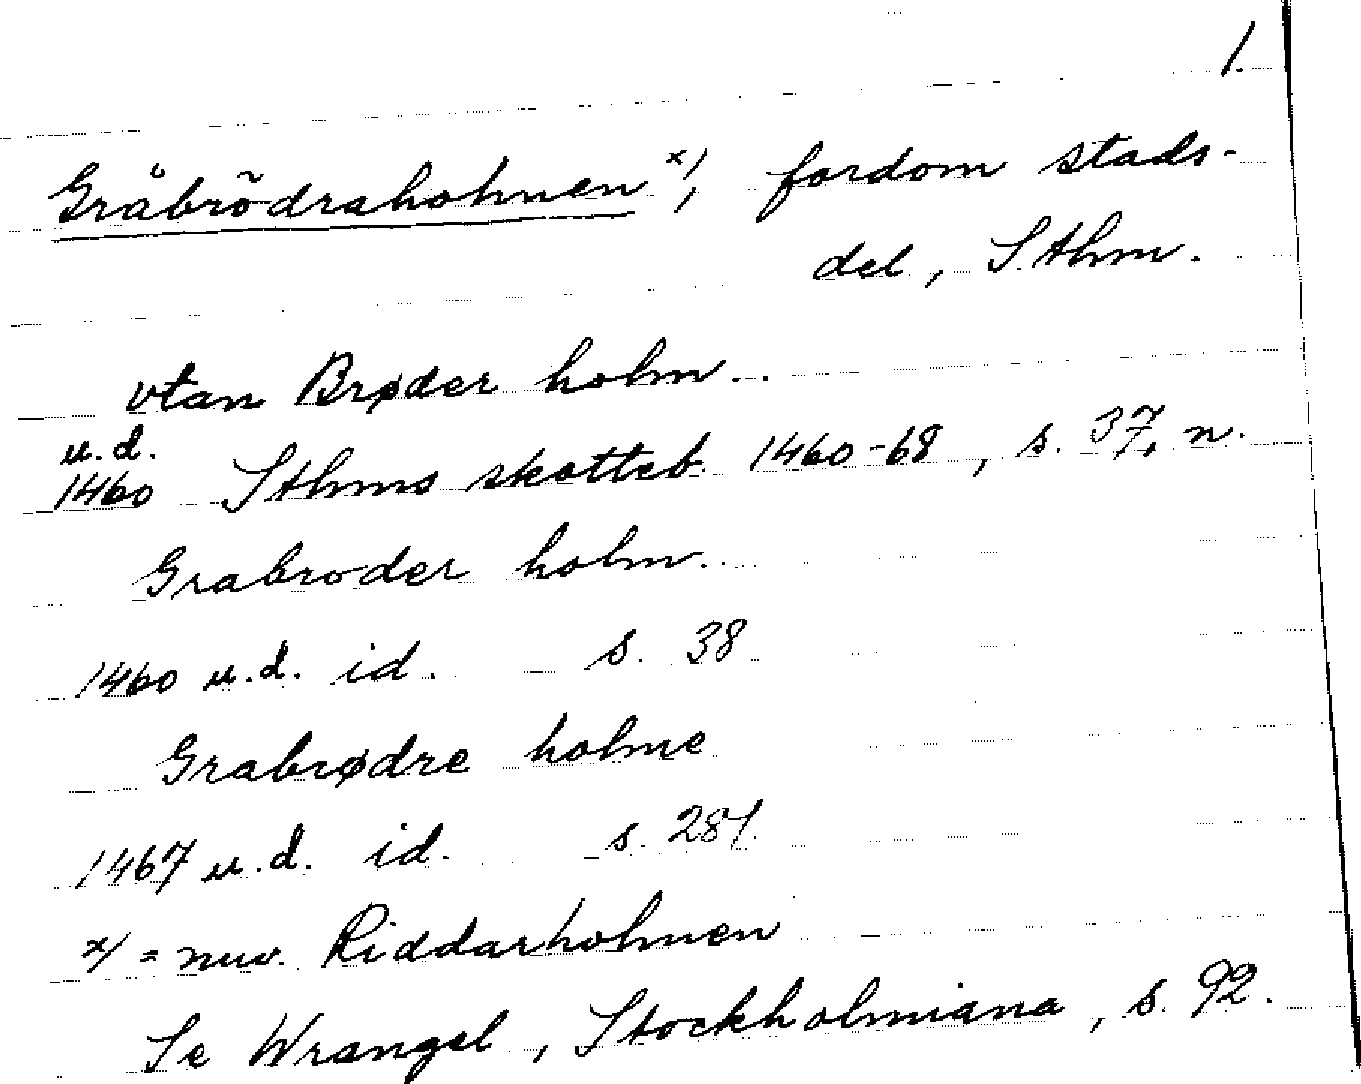 1.
Gråbrödraholmen x), fordom stads-
del, Sthm.
vtan Brøder holm..
u.d.
1460 Sthms skotteb. 1460-68, s. 37, n.
Grabroder holm.
1460 u.d. id. s. 38
Grabrødre holme
1467 u.d. id. s. 281.
x/ = nuv. Riddarholmen
Se Wrangel, Stockholmiana, s. 92.